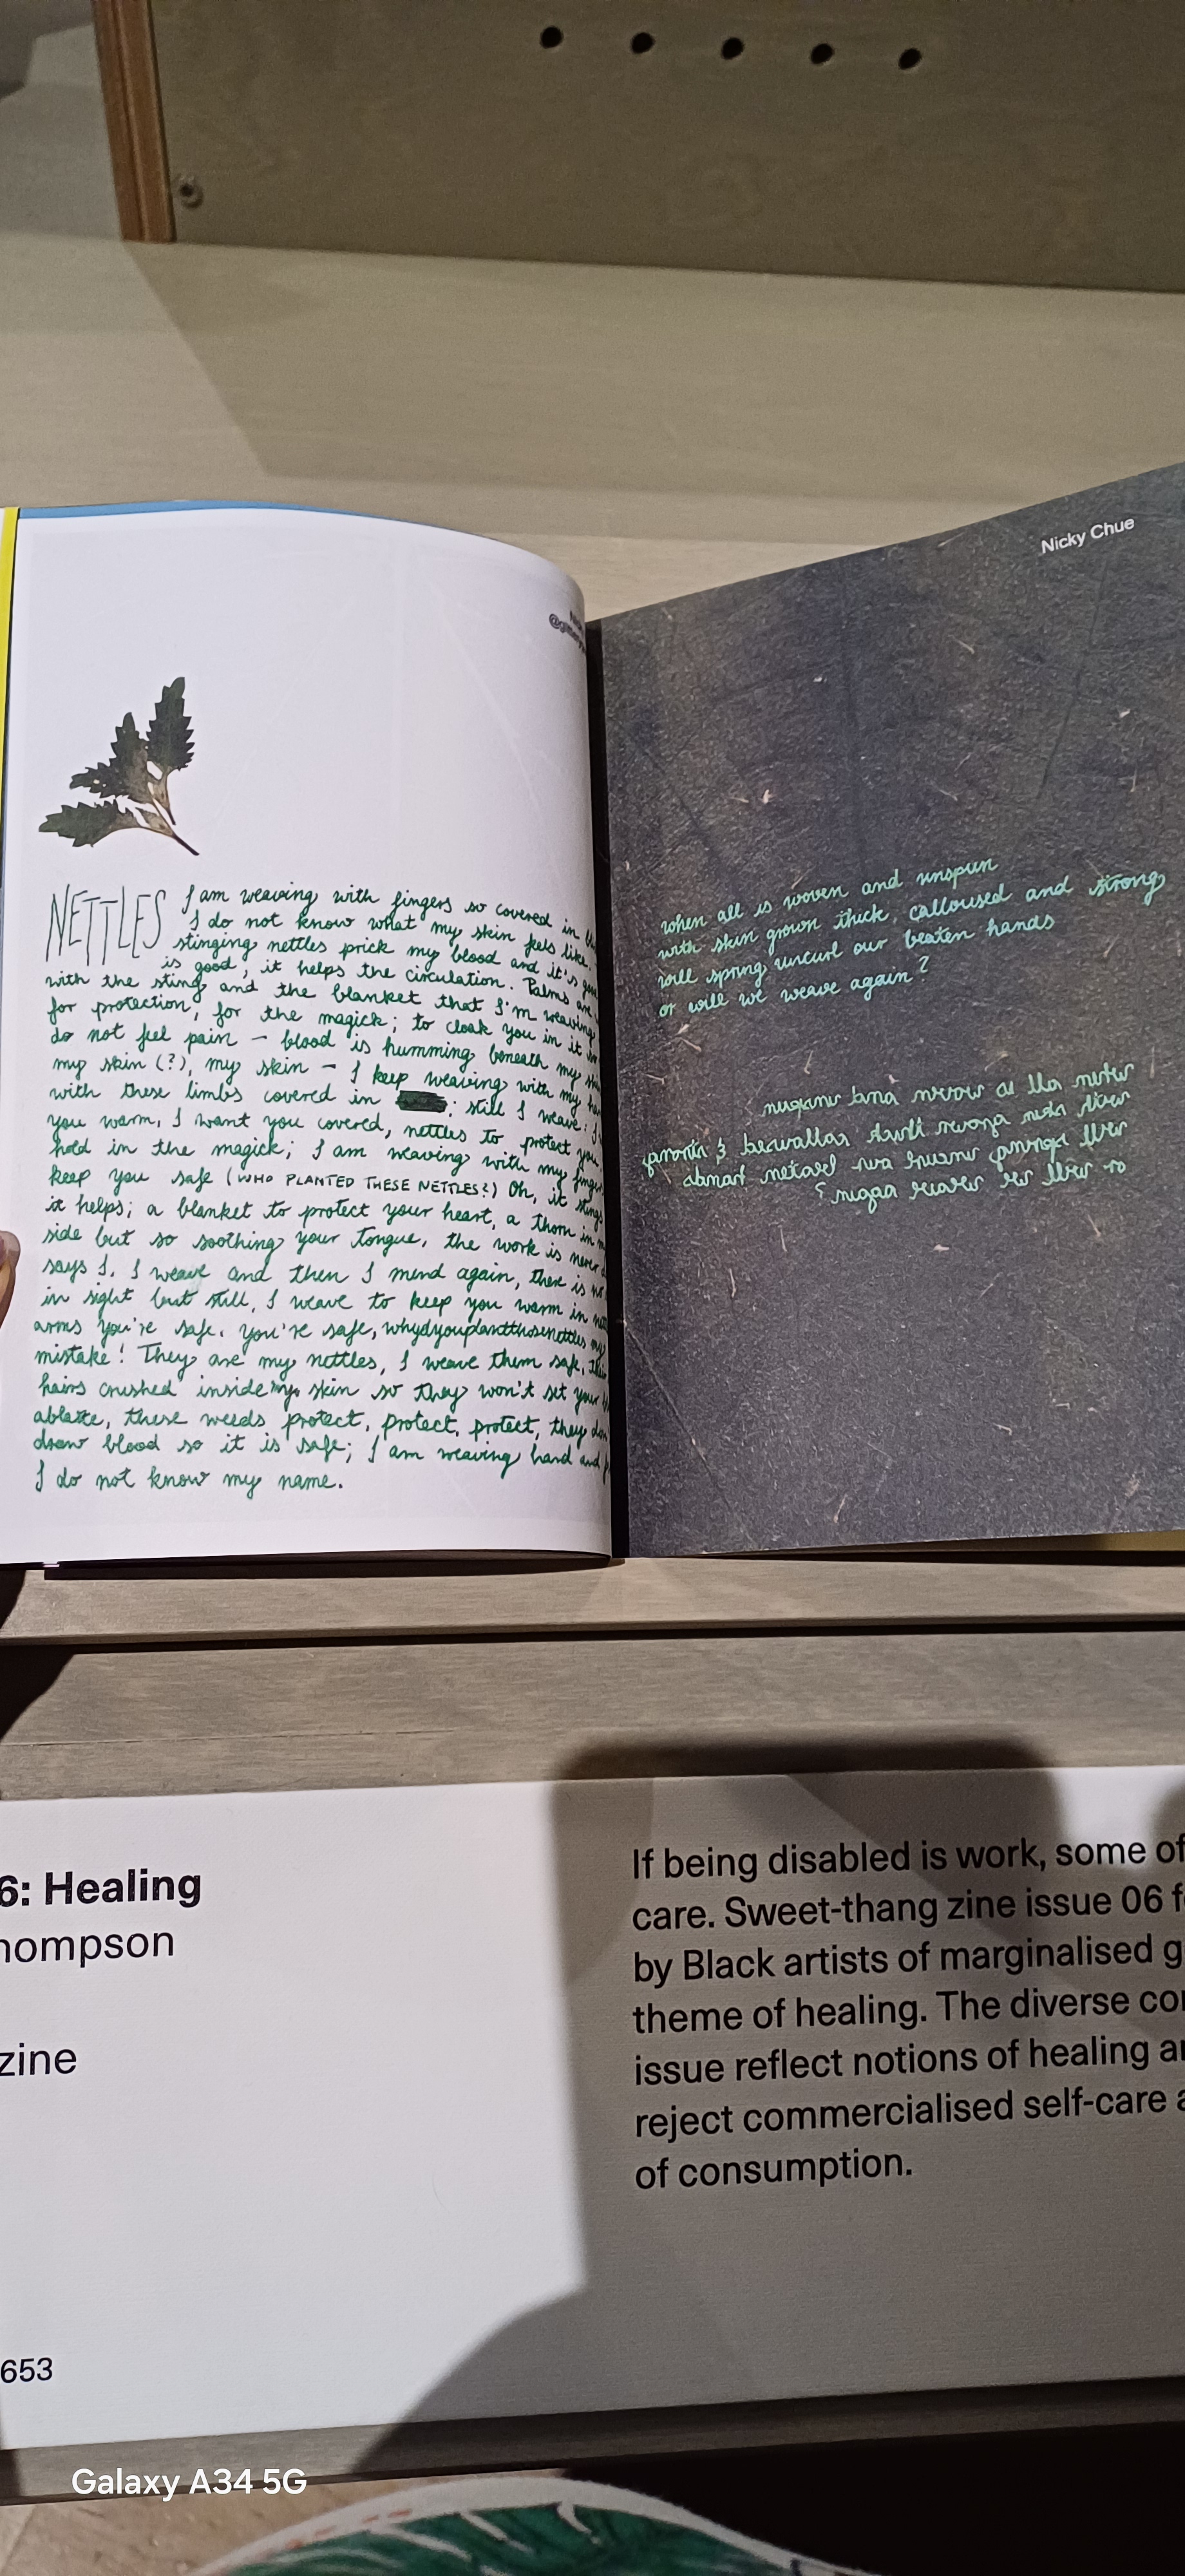 Nicky Chue
NETTLES I am weaving with fingers so covered in
I do not know what my skin feels like.
stinging nettles prick my blood and it's
is good, it helps the circulation. Palms are
with the sting and the blanket that I'm weaving
for protection, for the magick; to cloak you in it
do not feel pain – blood is humming beneath my
my skin (?), my skin – I keep weaving with my
with these limbs covered in ; still I weave;
you warm, I want you covered, nettles to protect you
hold in the magick; I am weaving with my
keep you safe (WHO PLANTED THESE NETTLES?) Oh, it stings
it helps; a blanket to protect your heart, a thorn in
side but so soothing your tongue, the work is never
says I. I weave and then I mend again, there is no
in sight but still, I weave to keep you warm in
arms you're safe. you're safe, whydyouplantthosenettles
mistake! They are my nettles, I weave them safe,
hairs crushed inside my skin so they won't set your
ablaze, these weeds protect, protect, protect, they
draw blood so it is safe; I am weaving hard and
I do not know my name.
when all is woven and unspun
with skin grown thick, calloused and strong
will spring uncurl our beaten hands
or will we weave again?
6: Healing
hompson
zine
653
If being disabled is work, some of
care. Sweet-thang zine issue 06 f
by Black artists of marginalised g
theme of healing. The diverse co
issue reflect notions of healing a
reject commercialised self-care a
of consumption.
Galaxy A34 5G